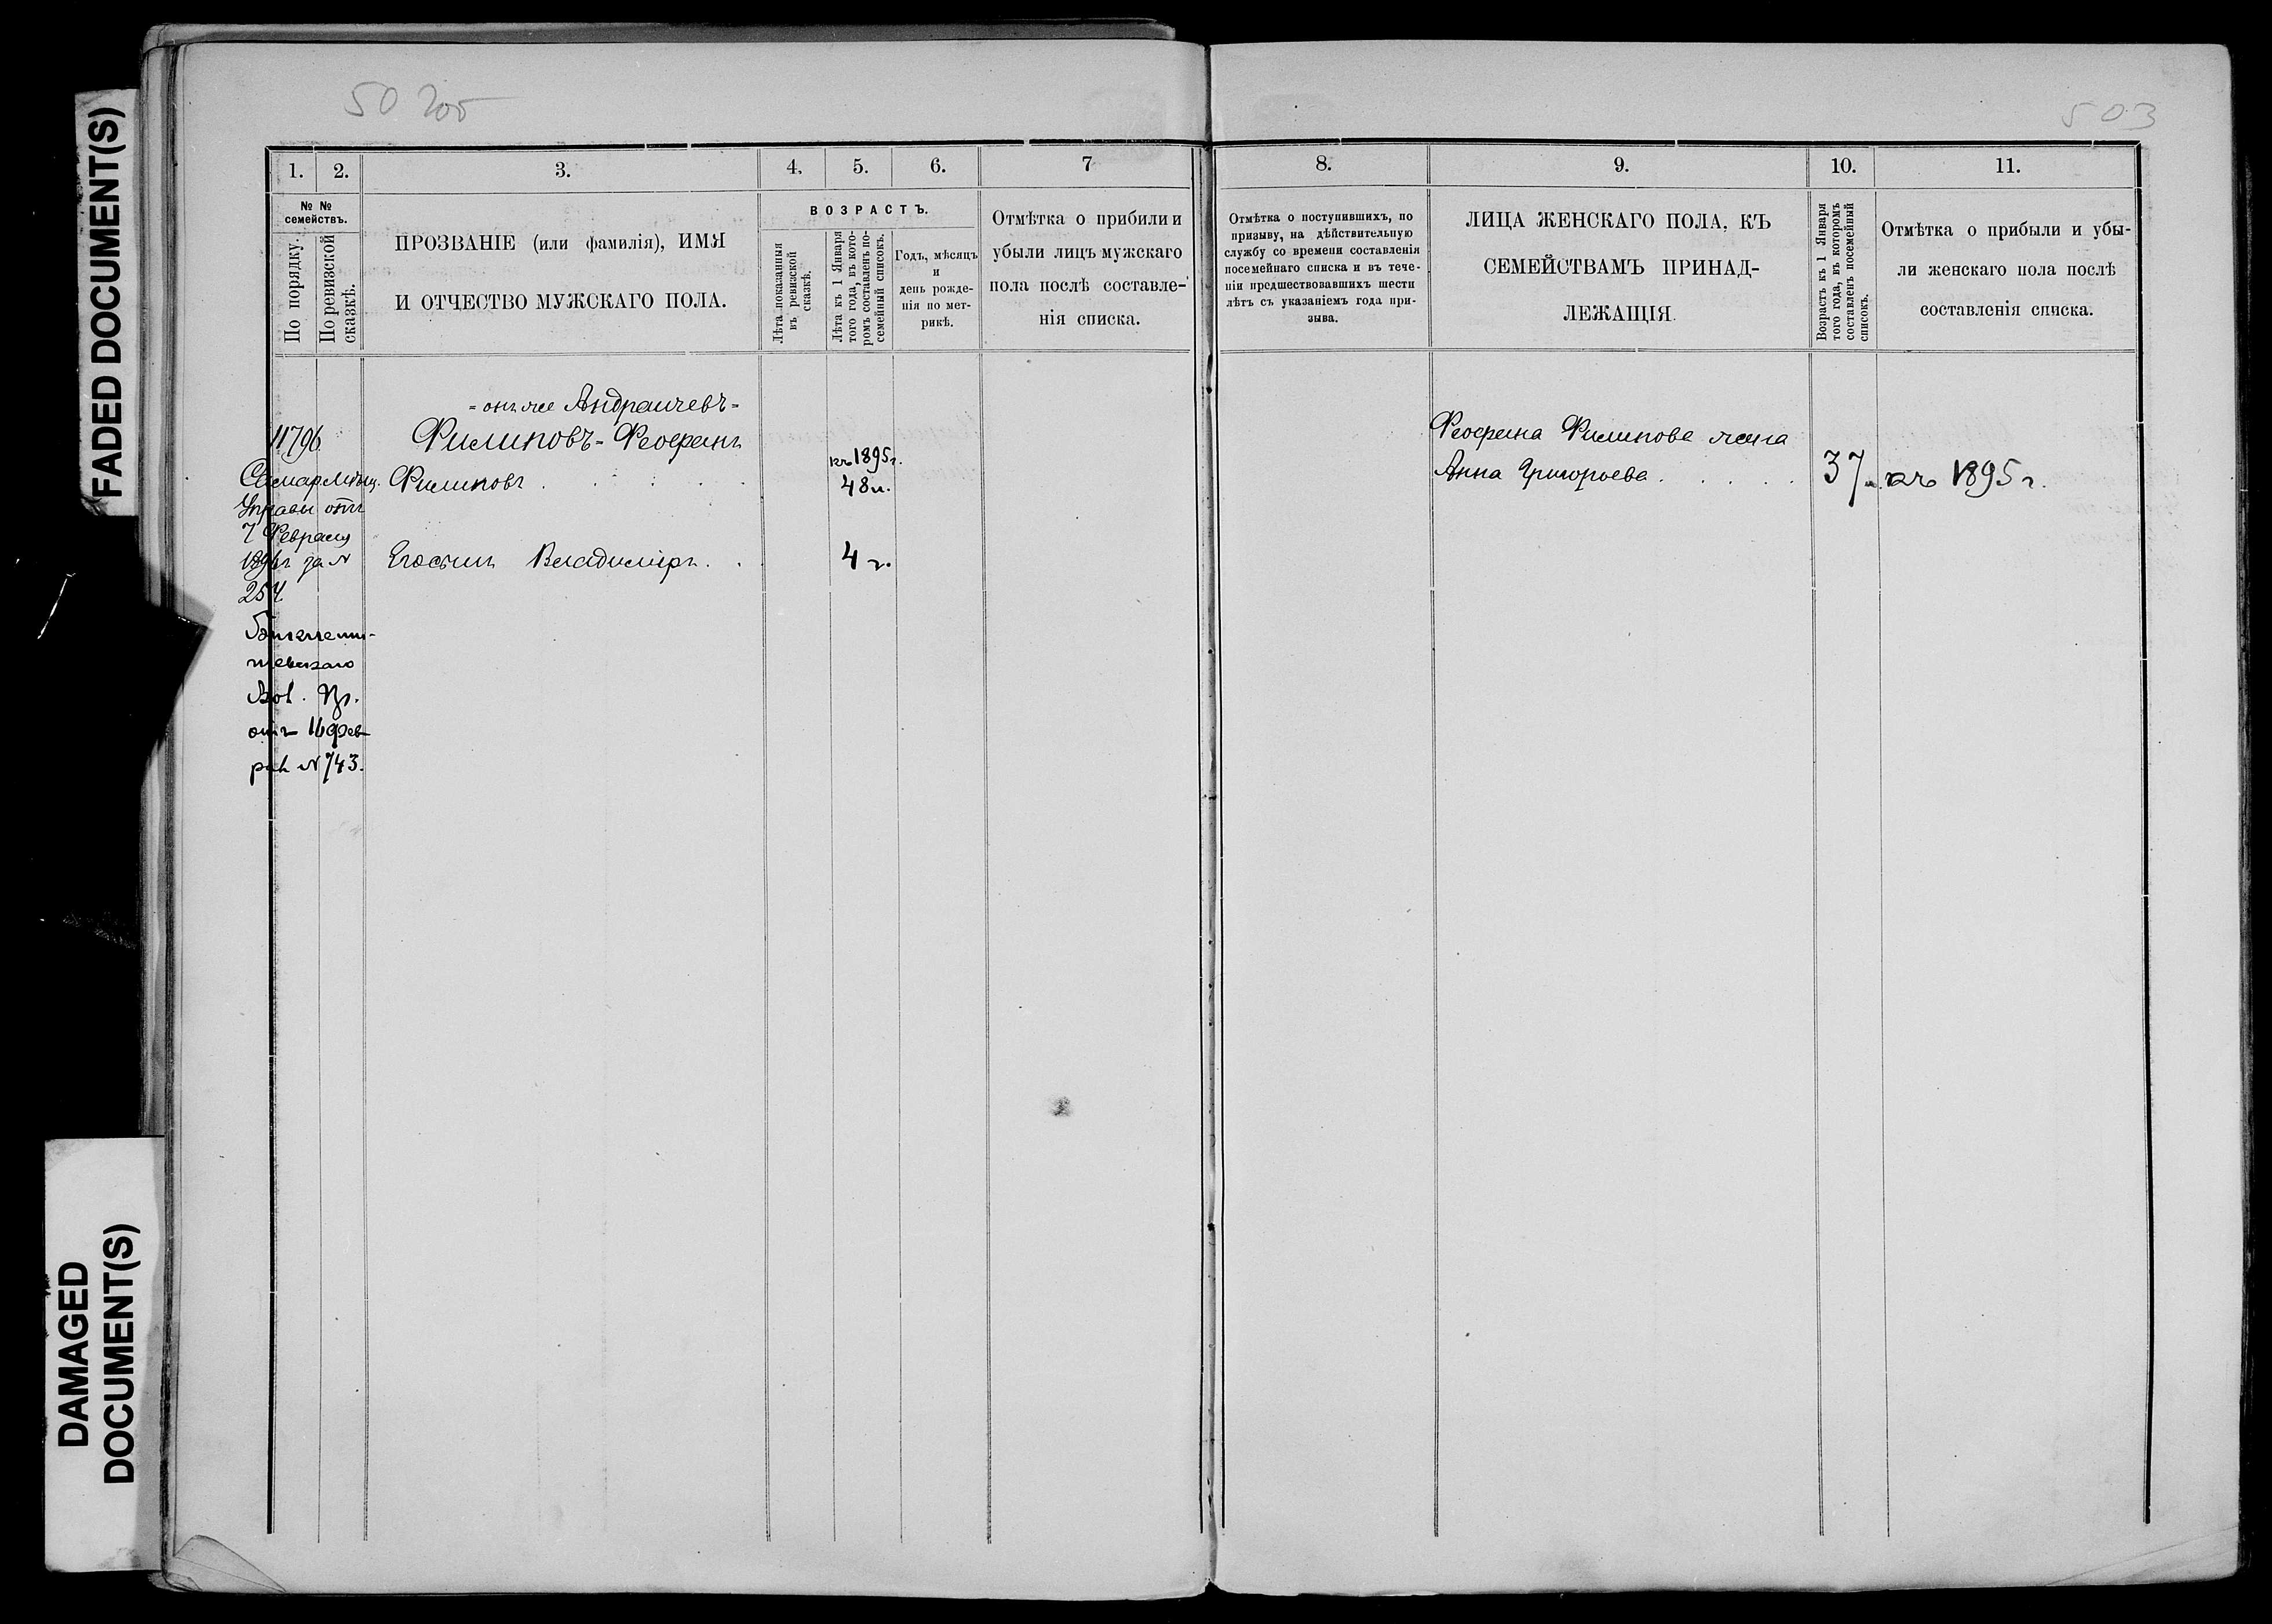 FADED DOCUMENT(S)
DAMAGED
DOCUMENT(S)
50 205
503
1. 2. 3. 4. 5. 6. 7
№ №
семействъ.
По порядку.
По ревизской
сказкѣ.
ПРОЗВАНІЕ (или фамилія), ИМЯ
И ОТЧЕСТВО МУЖСКАГО ПОЛА.
ВОЗРАСТЪ.
Лѣта показанныя
въ ревизской
сказкѣ.
Лѣта къ 1 Января
того года, въ кото-
ромъ составленъ по-
семейный списокъ.
Годъ, мѣсяцъ
и
день рожде-
нія по мет-
рикѣ.
Отмѣтка о прибили и
убыли лицъ мужскаго
пола послѣ составле-
нія списка.
8. 9. 10. 11.
Отмѣтка о поступившихъ, по
призыву, на дѣйствительную
службу со времени составленія
посемейнаго списка и въ тече-
ніи предшествовавшихъ шести
лѣтъ съ указаніемъ года при-
зыва.
ЛИЦА ЖЕНСКАГО ПОЛА, КЪ
СЕМЕЙСТВАМЪ ПРИНАД-
ЛЕЖАЩІЯ.
Возрастъ къ 1 Января
того года, въ которомъ
составленъ посемейный
списокъ.
Отмѣтка о прибыли и убы-
ли женскаго пола послѣ
составленія списка.
11796
Самар Мѣщ.
Управы отъ
7 Февраля
за №
254
Вол. Пр.
отъ 16 фев
рал № 743.
= онъ же Андреичевъ =
Филиповъ - Феофанъ
Филиповъ . . . . .
Егосынъ Владиміръ . .
къ 1895 г.
48 л.
4 г.
Феофана Филипова жена
Анна Григорьева . . . . .
37 л. къ 1895 г.